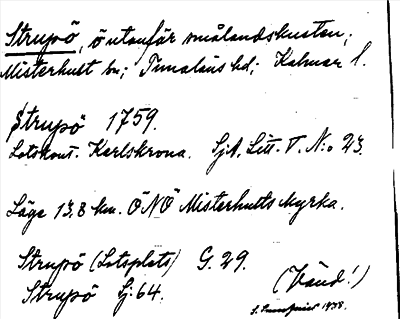 Strupö, ö utanför smålandskusten;
Misterhult sn; Tunaläns hd; Kalmar l.
Strupö 1759.
Lotskont. Karlskrona. SjA. Litt. T. N:o 23.
Läge 13.8 km. ÖNÖ Misterhults kyrka.
Strupö (Lotsplats) G. 29.
Strupö Ej: 64.
(Vänd!)
1938.